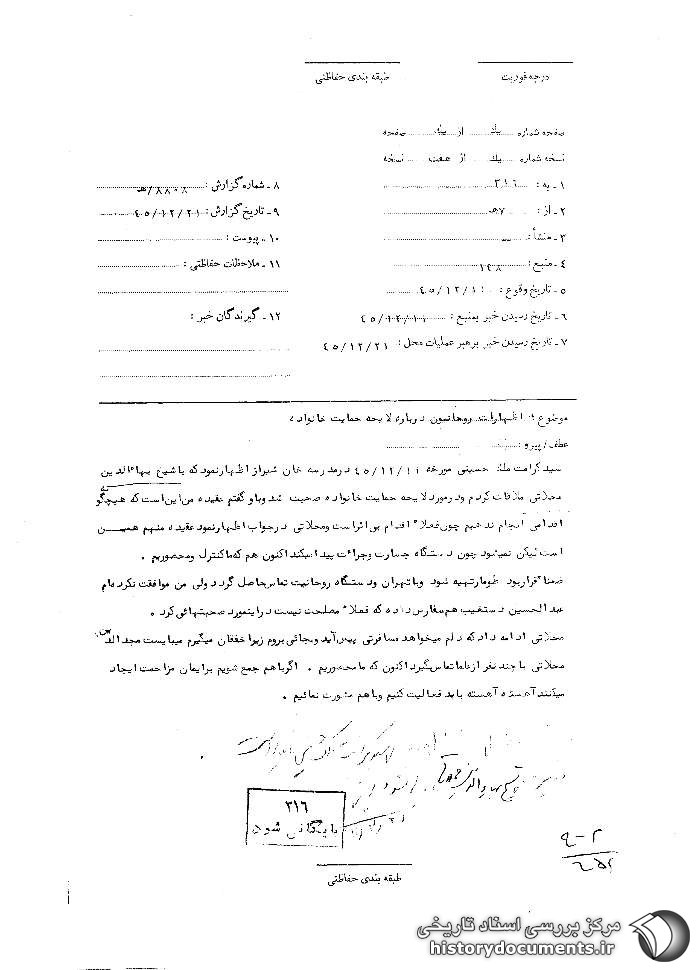 درجه فوریت
طبقه بندی حفاظتی
صفحه شماره یک از یک صفحه
نسخه شماره یک از هفت نسخه
۱ - به : ۳۱۶
۲ - از : ۷ هـ
۳ - منشأ :
۴ - منبع :
۵ - تاریخ وقوع :
۶ - تاریخ رسیدن خبر بمنبع :
۷ - تاریخ رسیدن خبر برهبر عملیات محل : ۴۵/۱۲/۲۱
۸ - شماره گزارش : ۸۸۰۸/هـ
۹ - تاریخ گزارش : ۴۵/۱۲/۲۱
۱۰ - پیوست :
۱۱ - ملاحظات حفاظتی :
۱۲ - گیرندگان خبر :
موضوع : اظهارات روحانیون درباره لایحه حمایت خانواده
عطف/ پیرو :
سید کرامت ملک حسینی مورخه ۴۵/۱۲/۱۱ در مدرسه خان شیراز اظهار نمود که با شیخ بهاءالدین
محلاتی ملاقات کردم و در مورد لایحه حمایت خانواده صحبت شد و باو گفتم عقیده من این است که هیچگونه
اقدامی انجام ندهیم چون فعلاً اقدام بی اثر است و محلاتی در جواب اظهار نمود عقیده منهم همین
است لیکن نمیشود چون دستگاه جسارت و جرات پیدا میکند اکنون هم که ما کنترل و محصوریم .
ضمناً قرار بود طومار تهیه شود و با تهران و دستگاه روحانیت تماس حاصل گردد ولی من موافقت نکرده‌ام
عبدالحسین دستغیب هم سفارش داده که فعلاً مصلحت نیست در اینمورد صحبتهائی کرد .
محلاتی ادامه داد که دلم میخواهد مسافرتی پیش آید و بجائی بروم زیرا خفقان میگیرم میبایست مجدالدین
محلاتی با چند نفر از علما تماس گیرد اکنون که ما محصوریم . اگر باهم جمع شویم برایمان مزاحمت ایجاد
میکنند آهسته آهسته باید فعالیت کنیم و باهم مشورت نمائیم .
۳۱۶
بایگانی شود
طبقه بندی حفاظتی
مرکز بررسی اسناد تاریخی
historydocuments.ir